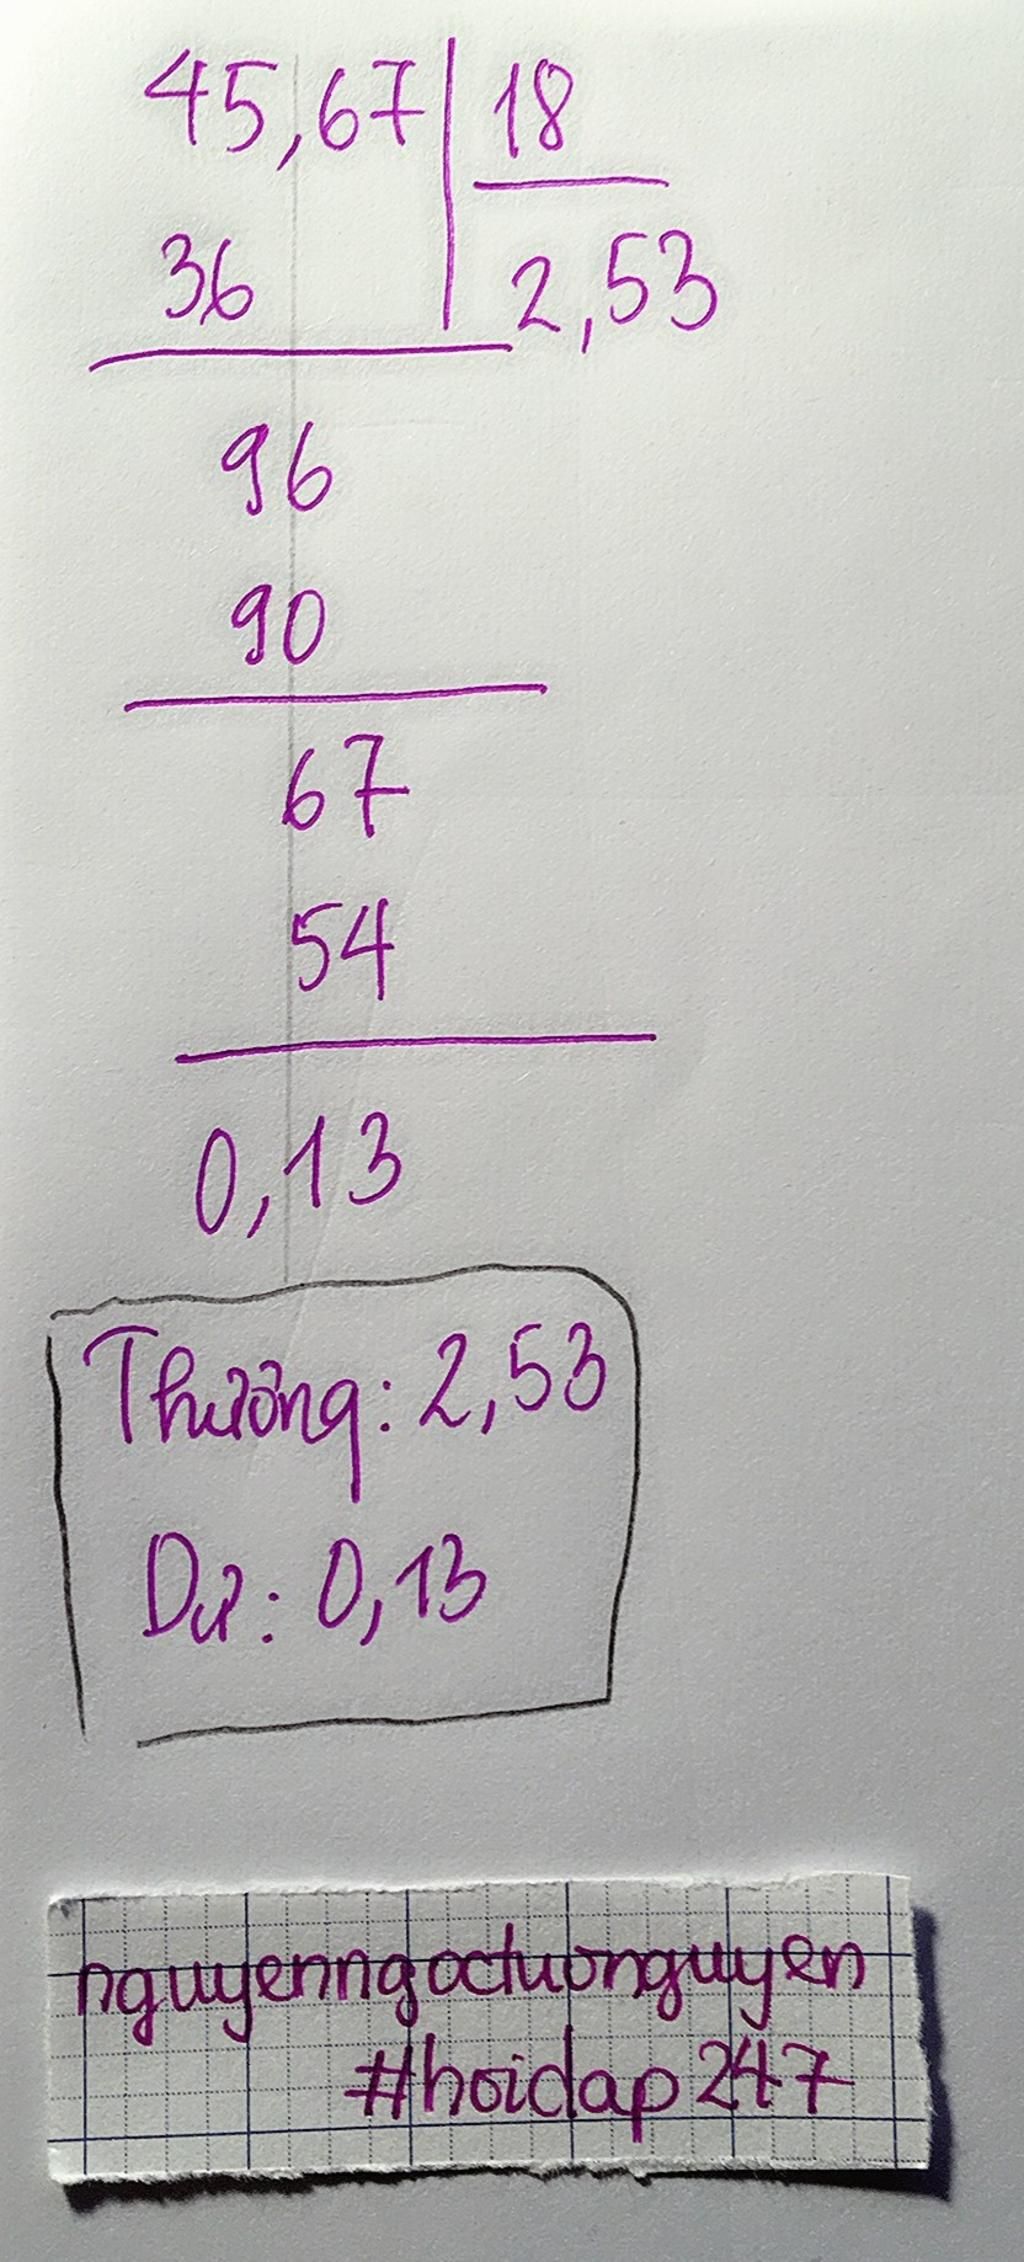 45,67 18
36 2,53
96
90
67
54
0,13
Thương: 2,53
Dư: 0,13
nguyenngoctuonguyen
#hoidap247